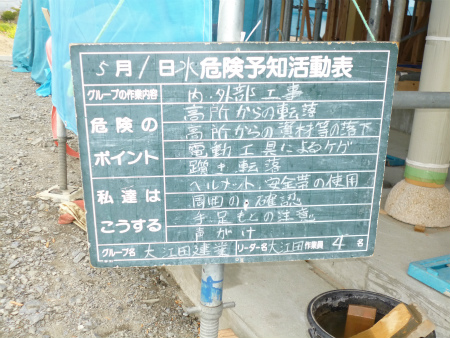 5月1日水危険予知活動表
グループの作業内容 内、外部工事
危険のポイント 高所からの転落
高所からの資材等の落下
電動工具によるケガ
躓き転落
私達はこうする ヘルメット、安全帯の使用
周囲の確認
手足もとの注意
声がけ
グループ名 大江田建業 リーダー名 大江田 作業員 4名